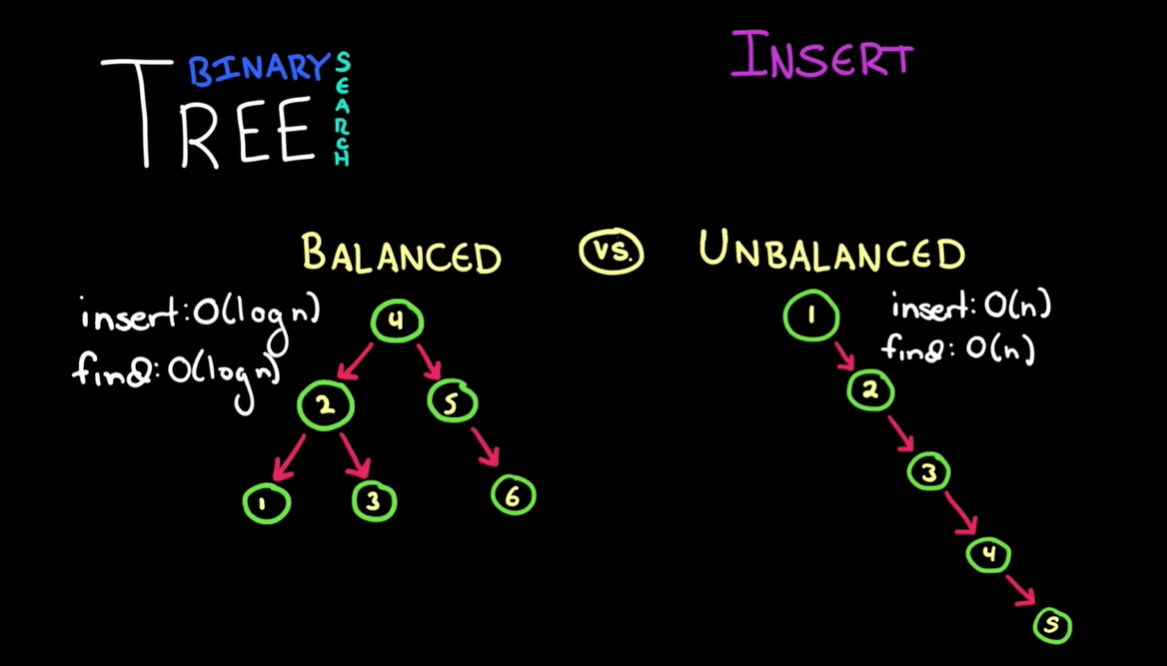 BINARY
SEARCH
TREE
INSERT
BALANCED
VS.
UNBALANCED
insert: O(log n)
find: O(log n)
4
2
5
1
3
6
insert: O(n)
find: O(n)
1
2
3
4
5